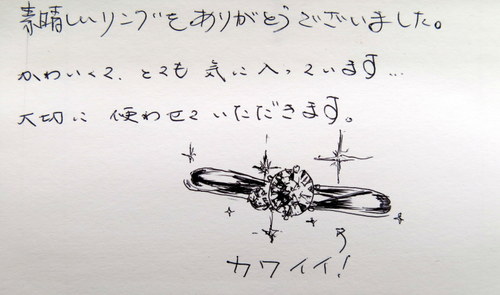 素晴しいリングをありがとうございました。
かわいくて、とても気に入っています…
大切に使わせていただきます。
カワイイ!